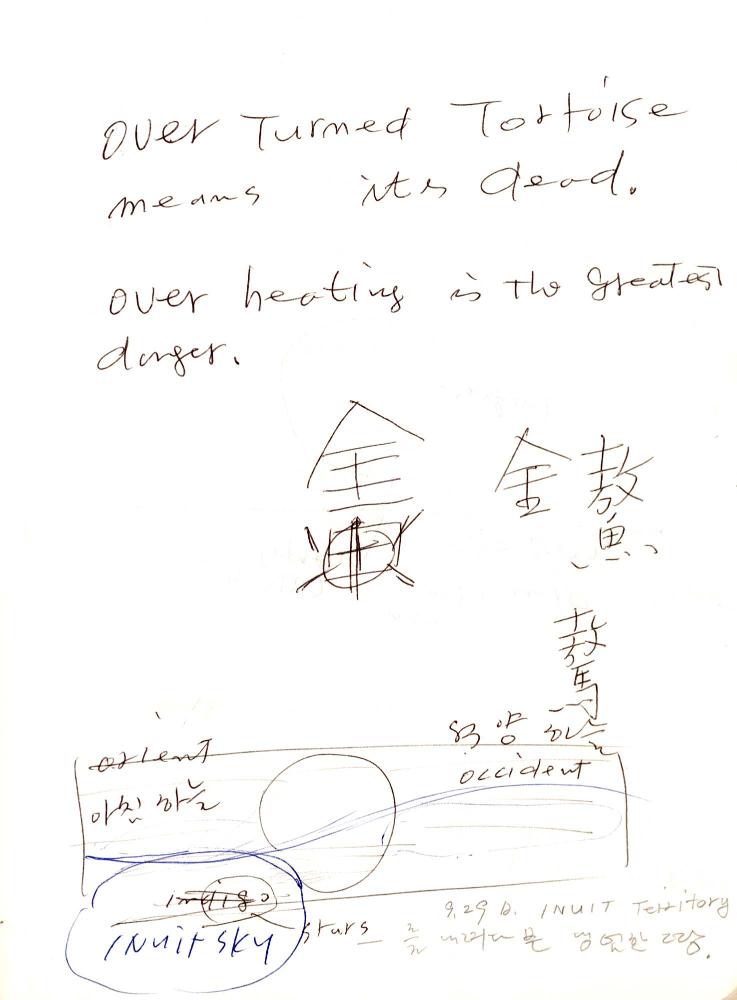 over Turned Tortoise
means its dead.
over heating is the greatest
danger.
金
金 鰲
驁
orient
석양 하늘
아침 하늘
occident
indigo
INUIT SKY
stars
9.29 B. INUIT Territory